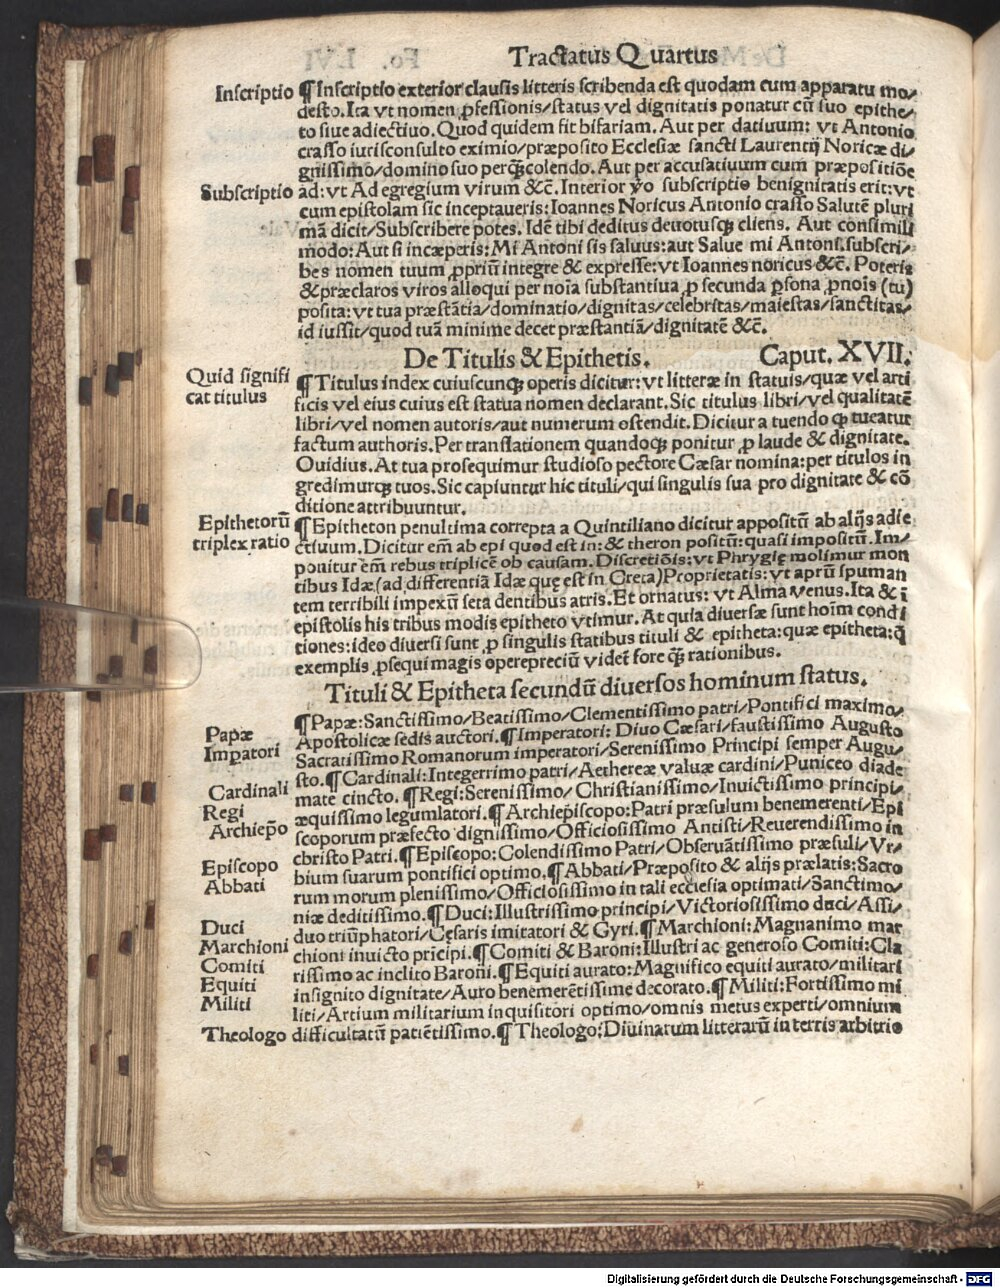 Tractatus Quartus
Inscriptio ¶Inscriptio exterior clausis litteris scribenda est quodam cum apparatu mo⸗
desto. Ita vt nomen ꝓfessionis/status vel dignitatis ponatur cū suo epithe⸗
to siue adiectiuo. Quod quidem fit bifariam. Aut per datiuum: vt Antonio
crasso iurisconsulto eximio/præposito Ecclesiæ sancti Laurentij Noricæ di⸗
gnissimo/domino suo perꝗ̄colendo. Aut per accusatiuum cum præpositiōe
Subscriptio ad: vt Ad egregium virum &c̄. Interior ꝟo subscriptio benignitatis erit: vt
cum epistolam sic inceptaueris: Ioannes Noricus Antonio crasso Salutē pluri
mā dicit/Subscribere potes. Idē tibi deditus deuotusqꝫ cliens. Aut consimili
modo: Aut si incæperis: Mi Antoni sis saluus: aut Salue mi Antoni. subscri⸗
bes nomen tuum ꝓpriū integre & expresse: vt Ioannes noricus &c̄. Poteris
& præclaros viros alloqui per noīa substantiua ꝓ secunda ꝑsona ꝓnoīs (tu)
posita: vt tua præstātia/dominatio/dignitas/celebritas/maiestas/sanctitas/
id iussit/quod tuā minime decet præstantiā/dignitatē &c̄.
De Titulis & Epithetis. Caput. XVII.
Quid signifi
cat titulus
¶Titulus index cuiuscunqꝫ operis dicitur: vt litteræ in statuis/quæ vel arti
ficis vel eius cuius est statua nomen declarant. Sic titulus libri/vel qualitatē
libri/vel nomen autoris/aut numerum ostendit. Dicitur a tuendo ꝙ tueatur
factum authoris. Per translationem quandoqꝫ ponitur ꝓ laude & dignitate.
Ouidius. At tua prosequimur studioso pectore Cæsar nomina: per titulos in
gredimurqꝫ tuos. Sic capiuntur hic tituli/qui singulis sua pro dignitate & cō
ditione attribuuntur.
Epithetorū
triplex ratio
¶Epitheton penultima correpta a Quintiliano dicitur appositū ab alijs adie
ctiuum. Dicitur em̄ ab epi quod est in: & theron positū: quasi impositū. Im⸗
ponitur em̄ rebus triplicē ob causam. Discretiōis: vt Phrygię molimur mon
tibus Idæ (ad differentiā Idæ quę est in Creta) Proprietatis: vt aprū spuman
tem terribili impexū seta dentibus atris. Et ornatus: vt Alma venus. Ita & ī
epistolis his tribus modis epitheto vtimur. At quia diuersæ sunt hoīm condi
tiones: ideo diuersi sunt ꝓ singulis statibus tituli & epitheta: quæ epitheta: ꝗ
exemplis ꝓsequi magis operepreciū videt̄ fore ꝗ̄ rationibus.
Tituli & Epitheta secundū diuersos hominum status.
Papæ
Imꝑatori
Cardinali
Regi
Archiepo̅
Episcopo
Abbati
Duci
Marchioni
Comiti
Equiti
Militi
Theologo
¶Papæ: Sanctissimo/Beatissimo/Clementissimo patri/Pontifici maximo/
Apostolicæ sedis auctori. ¶Imperatori: Diuo Cæsari/faustissimo Augusto
Sacratissimo Romanorum imperatori/Serenissimo Principi semper Augu⸗
sto. ¶Cardinali: Integerrimo patri/Aethereæ valuæ cardini/Puniceo diade
mate cincto. ¶Regi: Serenissimo/Christianissimo/Inuictissimo principi/
æquissimo legumlatori. ¶Archiepiscopo: Patri præsulum benemerenti/Epi
scoporum præfecto dignissimo/Officiosissimo Antisti/Reuerendissimo in
christo Patri. ¶Episcopo: Colendissimo Patri/Obseruātissimo præsuli/Vr⸗
bium suarum pontifici optimo. ¶Abbati/Præposito & alijs prælatis: Sacro
rum morum plenissimo/Officiosissimo in tali ecclesia optimati/Sanctimo⸗
niæ deditissimo. ¶Duci: Illustrissimo principi/Victoriosissimo duci/Assi⸗
duo triūphatori/Cęsaris imitatori & Gyri. ¶Marchioni: Magnanimo mar
chioni inuicto prīcipi. ¶Comiti & Baroni: Illustri ac generoso Comiti: Cla
rissimo ac inclito Baroni. ¶Equiti aurato: Magnifico equiti aurato/militari
insignito dignitate/Auro benemerētissime decorato. ¶Militi: Fortissimo mi
liti/Artium militarium inquisitori optimo/omnis metus experti/omnium
difficultatū patiētissimo. ¶Theologo: Diuinarum litterarū in terris arbitrio
Digitalisierung gefördert durch die Deutsche Forschungsgemeinschaft - DFG